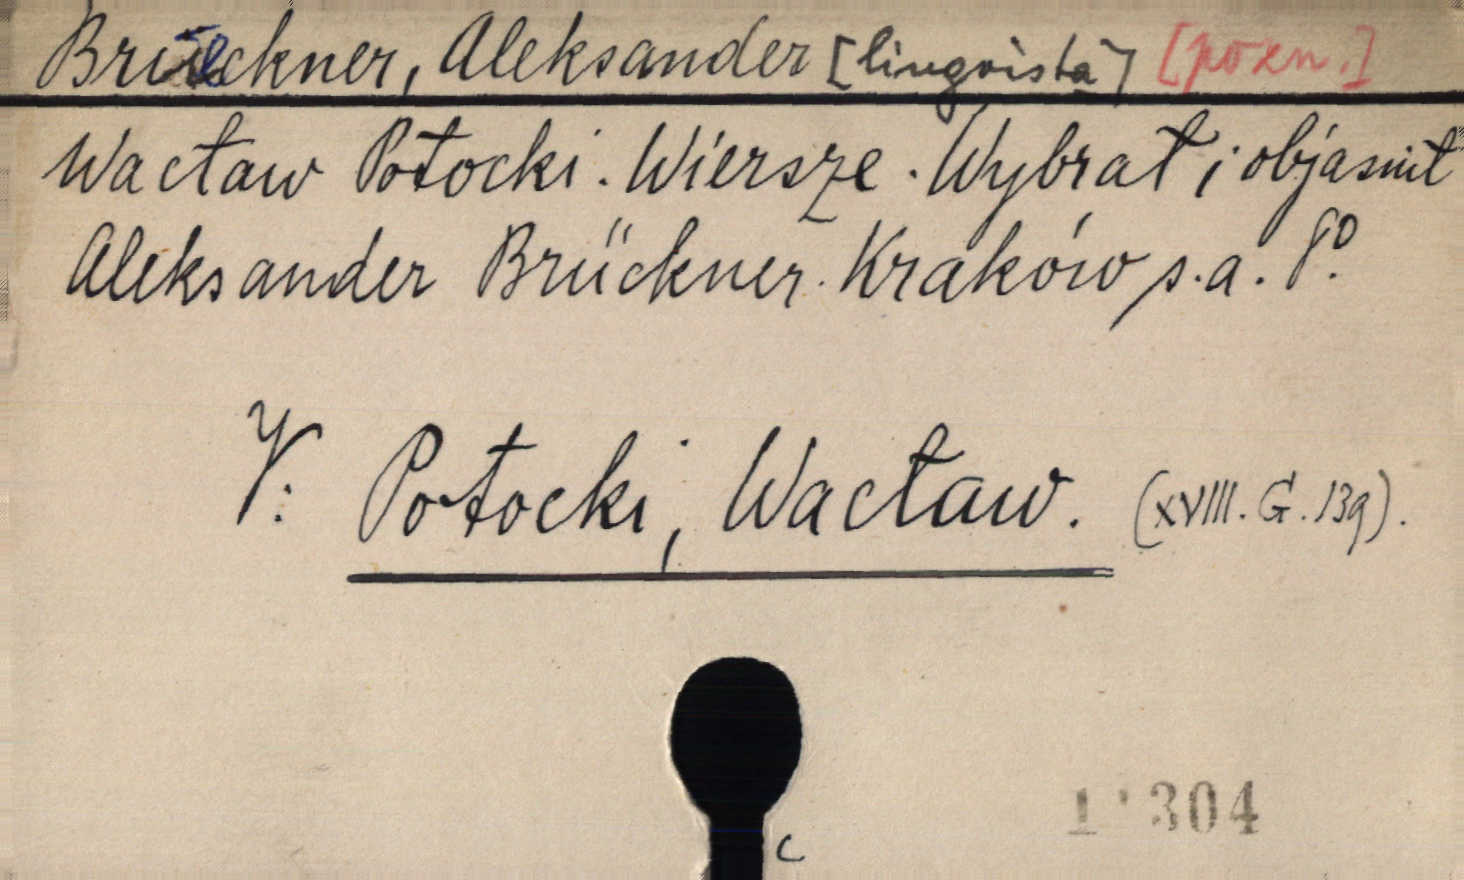 Brueckner, Aleksander [lingvista] [pozn.]
Wacław Potocki. Wiersze. Wybrał i objasnił
Aleksander Brückner. Kraków s.a. 8°.
V: Potocki, Wacław. (XVIII. G. 139).
304
c